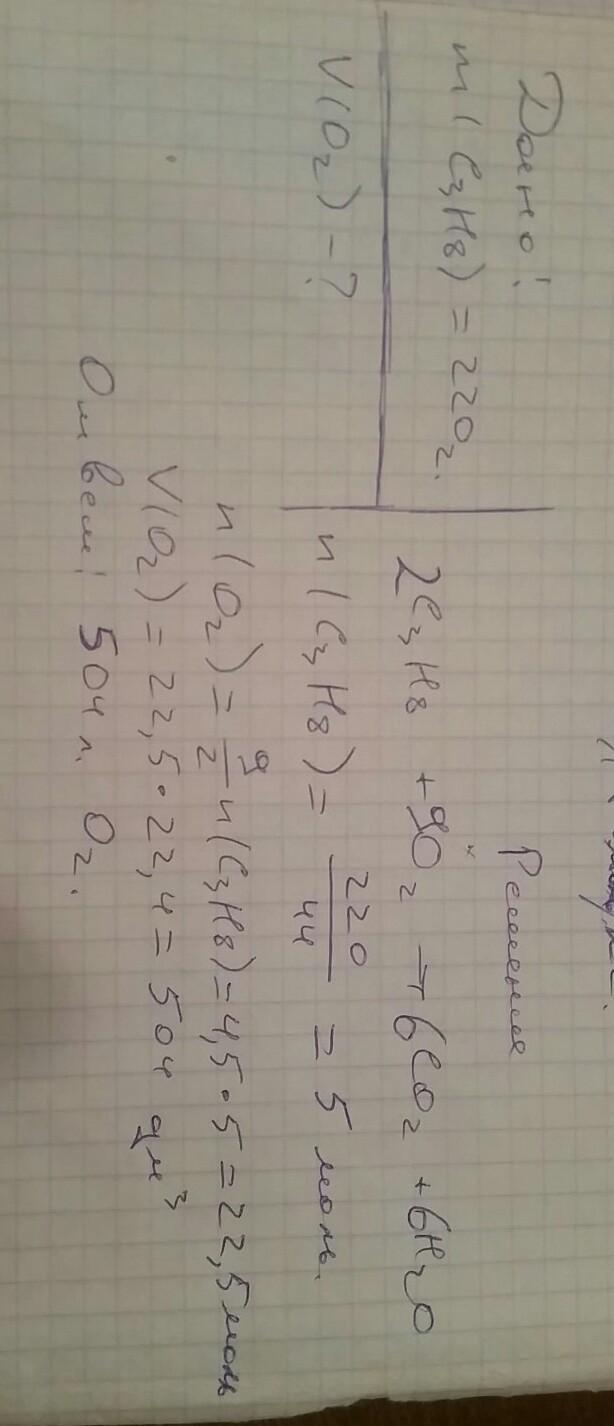 Дано!
m(C3H8) = 220г.
V(O2) - ?
Решение
2C3H8 + 9O2 → 6CO2 + 6H2O
n(C3H8) = 220/44 = 5 моль.
n(O2) = 9/2 n(C3H8) = 4,5 · 5 = 22,5 моль
V(O2) = 22,5 · 22,4 = 504 дм³
Ответ! 504 л. O2.